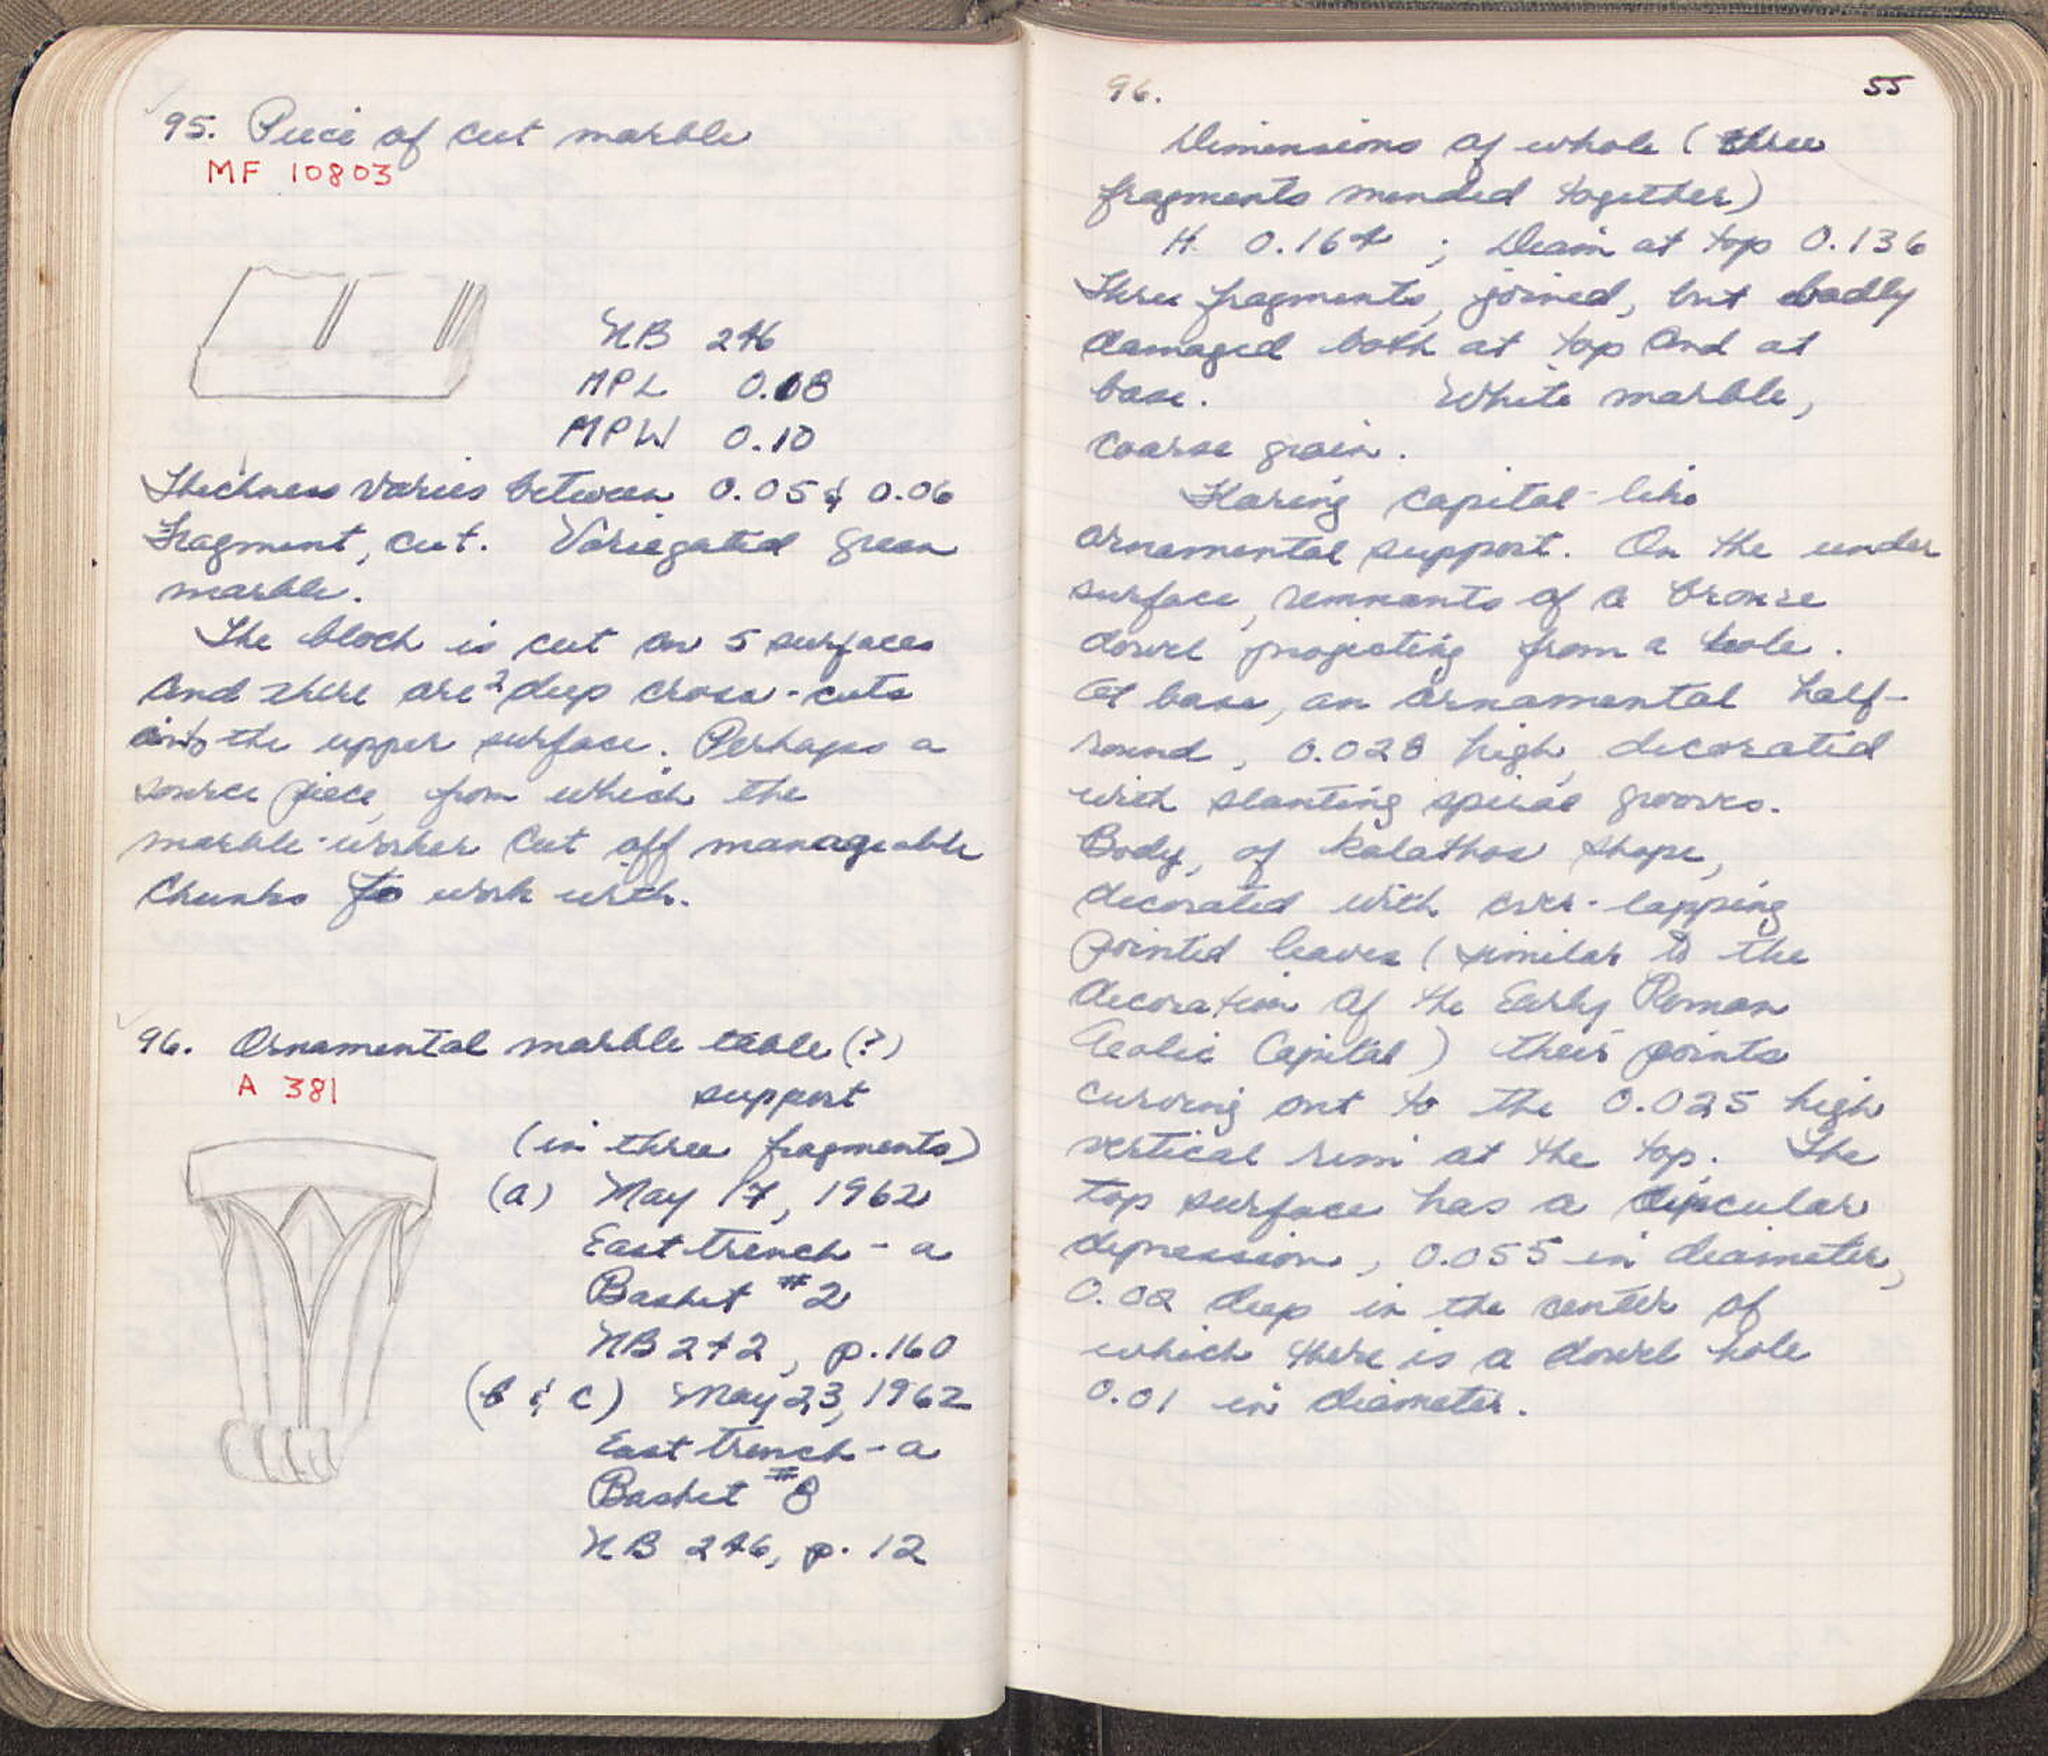 95. Piece of cut marble
MF 10803
NB 246
MPL 0.08
MPW 0.10
Thickness varies between 0.05 & 0.06
Fragment, cut. Variegated green
marble.
The block is cut on 5 surfaces
and there are 2 deep cross-cuts
into the upper surface. Perhaps a
source piece, from which the
marble-worker cut off manageable
chunks to work with.
96. Ornamental marble table (?)
A 381
support
(in three fragments)
(a) May 17, 1962
East trench - a
Basket #2
NB 242, p. 160
(b & c) May 23, 1962
East trench - a
Basket #8
NB 246, p. 12
96.
55
Dimensions of whole (three
fragments mended together)
H. 0.164 ; Diam at top 0.136
Three fragments, joined, but badly
damaged both at top and at
base. White marble,
coarse grain.
Flaring capital-like
ornamental support. On the under
surface, remnants of a bronze
dowel projecting from a hole.
At base, an ornamental half-
round, 0.028 high, decorated
with slanting spiral grooves.
Body, of kalathos shape,
decorated with over-lapping
pointed leaves (similar to the
decoration of the Early Roman
Aeolic Capital) their points
curving out to the 0.025 high
vertical rim at the top. The
top surface has a circular
depression, 0.055 in diameter,
0.02 deep in the center of
which there is a dowel hole
0.01 in diameter.